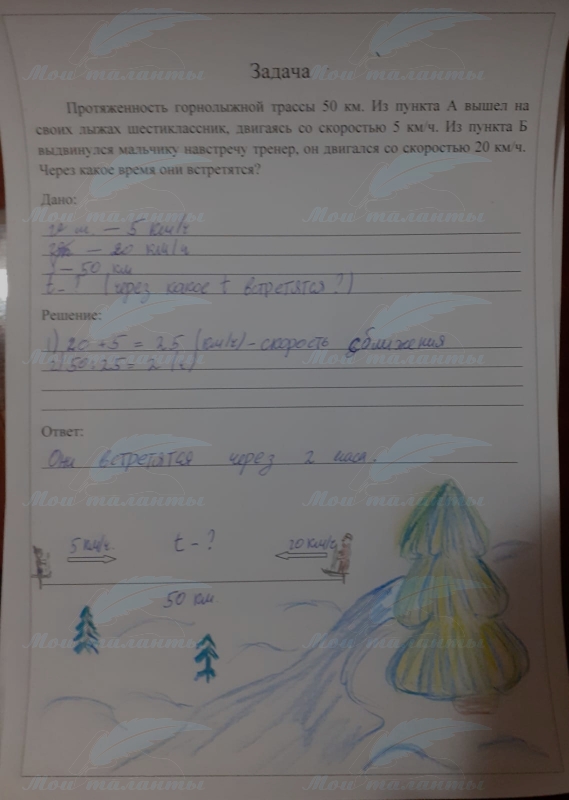 Задача
Протяженность горнолыжной трассы 50 км. Из пункта А вышел на
своих лыжах шестиклассник, двигаясь со скоростью 5 км/ч. Из пункта Б
выдвинулся мальчику навстречу тренер, он двигался со скоростью 20 км/ч.
Через какое время они встретятся?
Дано:
— 5 км/ч
— 20 км/ч
– 50 км
t - ? (через какое t встретятся?)
Решение:
1) 20 + 5 = 25 (км/ч) - скорость сближения
2) 50 : 25 = 2 (ч)
Ответ:
Они встретятся через 2 часа.
5 км/ч. t - ? 20 км/ч
50 км
Мои таланты